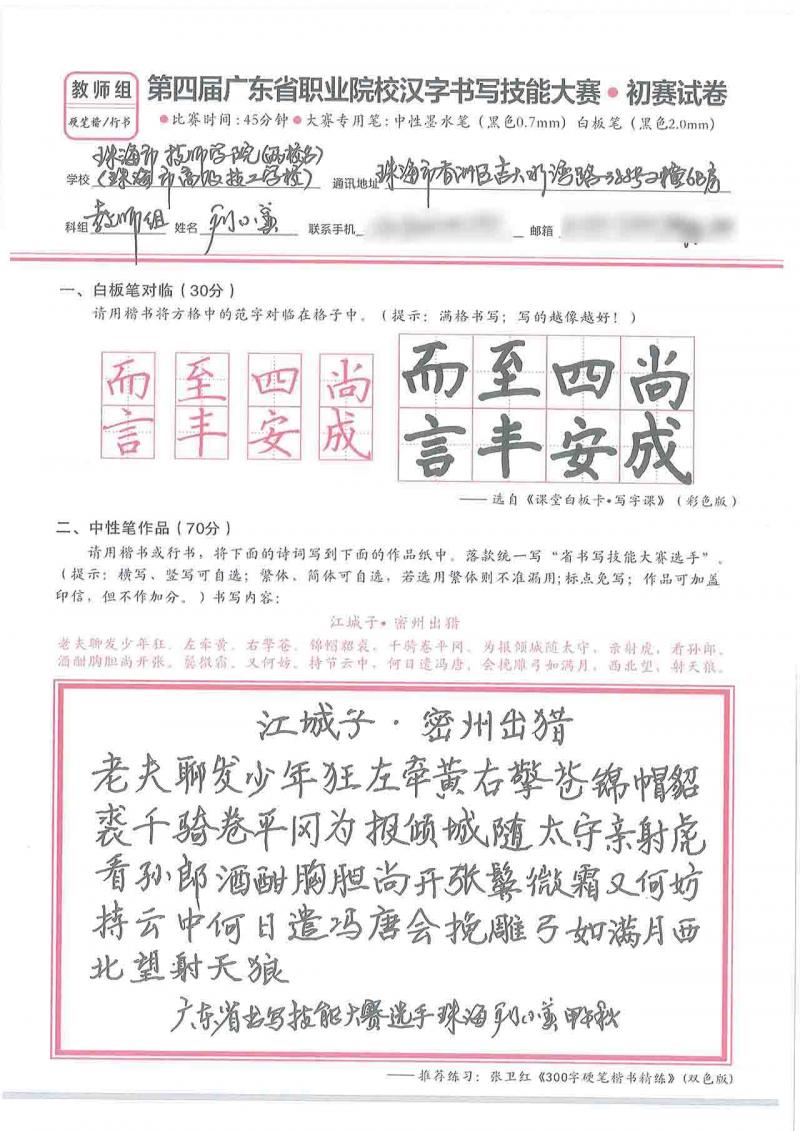 教师组
硬笔楷/行书
第四届广东省职业院校汉字书写技能大赛●初赛试卷
●比赛时间：45分钟●大赛专用笔：中性墨水笔（黑色0.7mm）白板笔（黑色2.0mm）
珠海市技师学院
学校（珠海市高级技工学校） 通讯地址 珠海市香洲区吉大
科组 教师组 姓名 联系手机 邮箱
一、白板笔对临（30分）
请用楷书将方格中的范字对临在格子中。（提示：满格书写；写的越像越好！）
而 至 四 尚 而 至 四 尚
言 丰 安 成 言 丰 安 成
——选自《课堂白板卡•写字课》（彩色版）
二、中性笔作品（70分）
请用楷书或行书，将下面的诗词写到下面的作品纸中。落款统一写“省书写技能大赛选手”。
（提示：横写、竖写可自选；繁体、简体可自选，若选用繁体则不准漏用；标点免写；作品可加盖
印信，但不作加分。）书写内容：
江城子•密州出猎
老夫聊发少年狂。左牵黄。右擎苍。锦帽貂裘，千骑卷平冈。为报倾城随太守，亲射虎，看孙郎。
酒酣胸胆尚开张。鬓微霜。又何妨。持节云中，何日遣冯唐。会挽雕弓如满月，西北望，射天狼。
江城子·密州出猎
老夫聊发少年狂左牵黄右擎苍锦帽貂
裘千骑卷平冈为报倾城随太守亲射虎
看孙郎酒酣胸胆尚开张鬓微霜又何妨
持云中何日遣冯唐会挽雕弓如满月西
北望射天狼
广东省书写技能大赛选手珠海
——推荐练习：张卫红《300字硬笔楷书精练》（双色版）